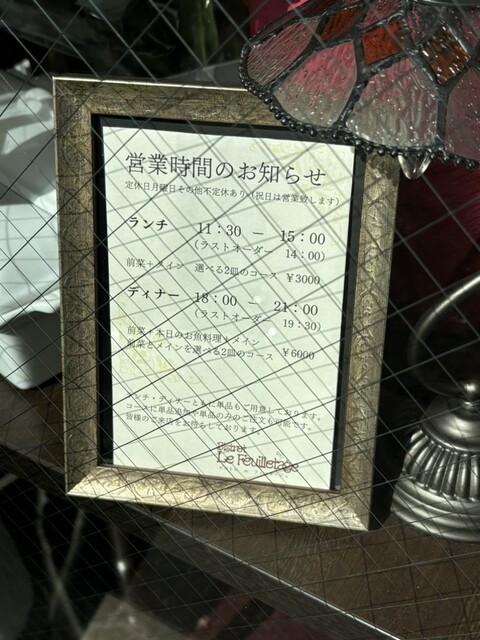 営業時間のお知らせ
定休日月曜日その他不定休あり（祝日は営業致します）
ランチ 11：30 － 15：00
（ラストオーダー 14：00）
前菜＋メイン 選べる2皿のコース ￥3000
ディナー 18：00 － 21：00
（ラストオーダー 19：30）
前菜＋本日のお魚料理＋メイン
前菜とメインを選べる2皿のコース ￥6000
ランチ・ディナーともに単品もご用意しております。
コースに単品追加や単品のみのご注文も可能です。
皆様のご来店をお待ちしております。
Bistrot
Le Feuilletage